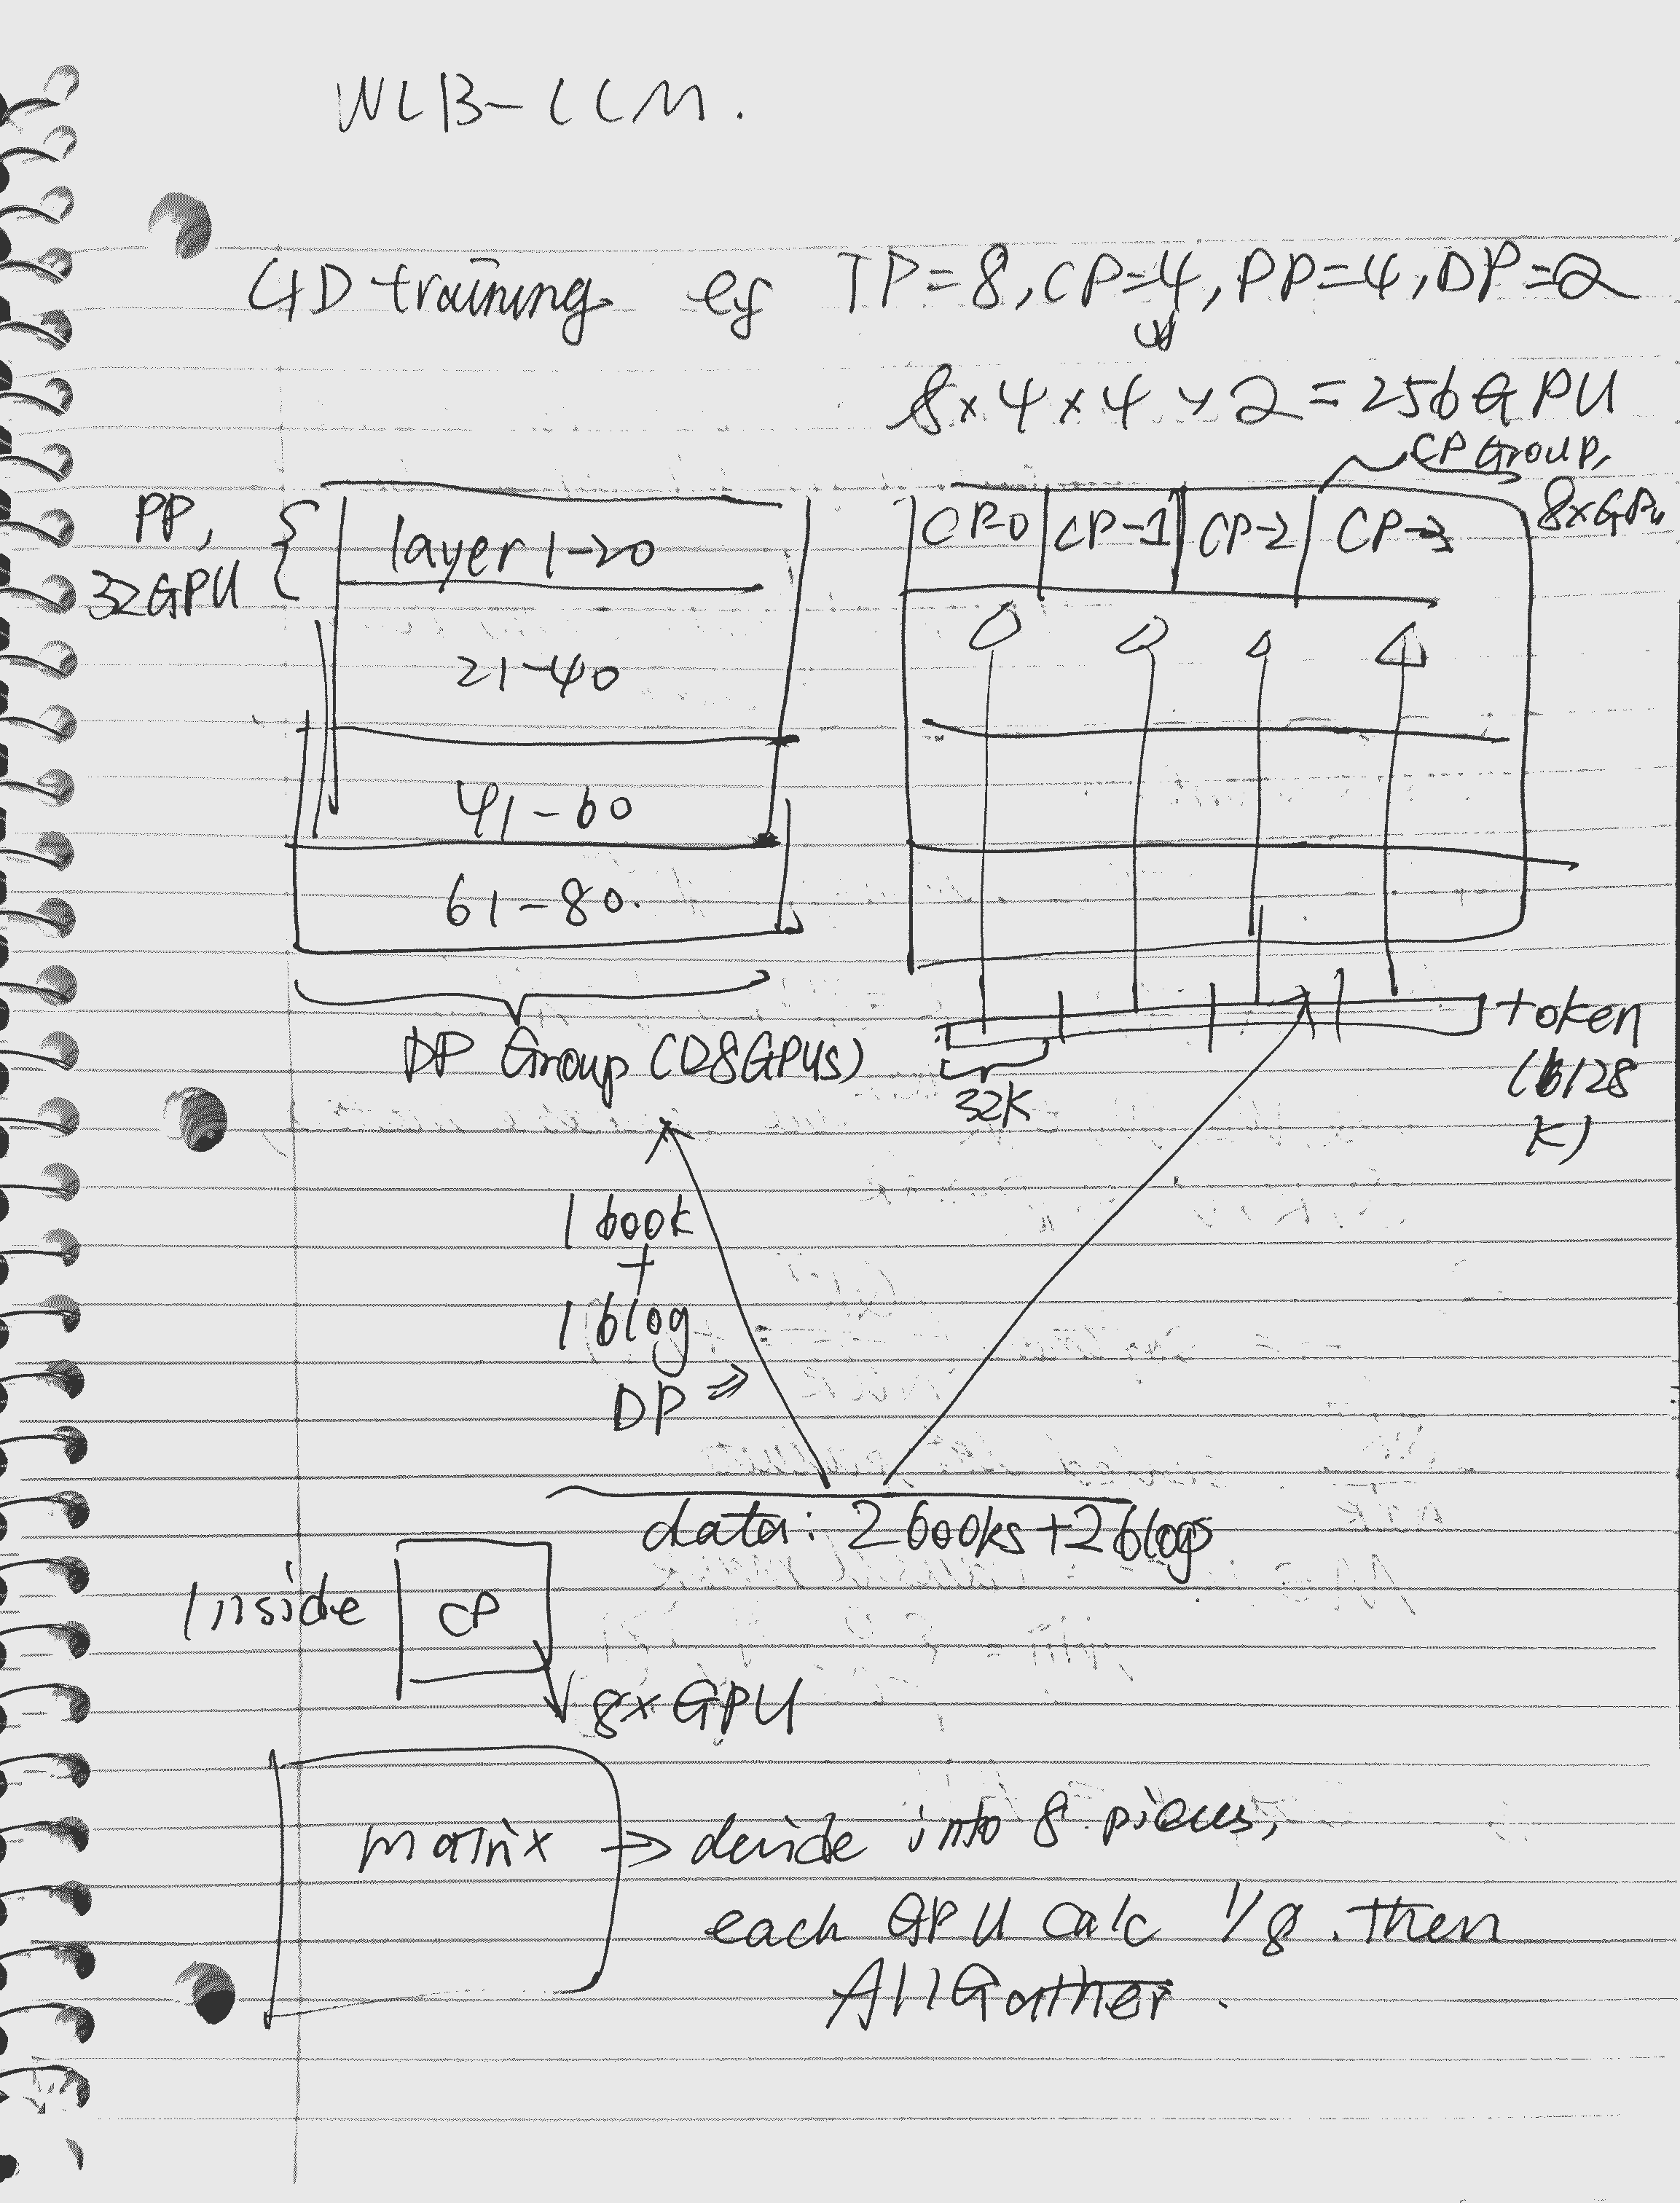 WLB-LLM.
4D training eg TP=8, CP=4, PP=4, DP=2
8×4×4×2=256GPU
CP Group,
8×GPU
PP,
32GPU
layer 1-20
21-40
41-60
61-80.
CP-0 CP-1 CP-2 CP-3
DP Group (128GPUs)
32K
token
128
K)
1 book
+
1 blog
DP ⇒
data: 2 books+2blogs
Inside CP
8×GPU
matrix → devide into 8 pieces,
each GPU Calc 1/8. then
AllGather.